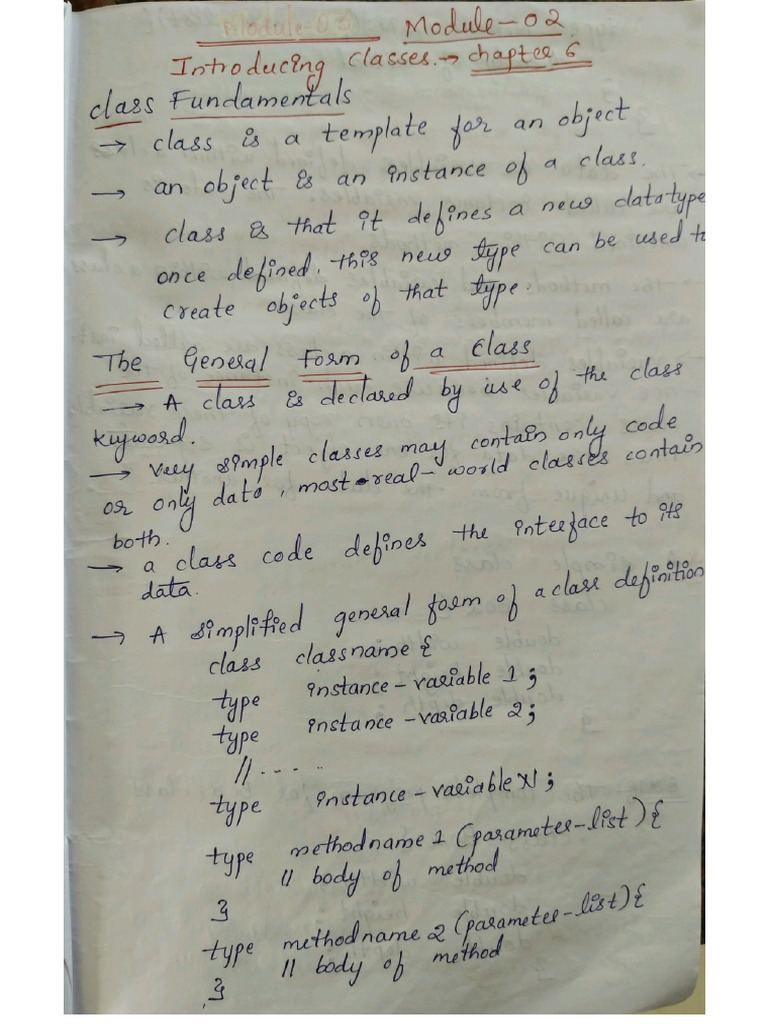 Module-02
Introducing Classes. → chapter 6
class Fundamentals
→ class is a template for an object
→ an object is an instance of a class.
→ class is that it defines a new datatype
once defined, this new type can be used to
create objects of that type.
The General Form of a Class
→ A class is declared by use of the class
keyword.
→ very simple classes may contain only code
or only data, most real-world classes contain
both.
→ a class code defines the interface to its
data.
→ A simplified general form of a class definition
class classname {
type instance-variable 1;
type instance-variable 2;
//.....
type instance-variable N;
type methodname 1 (parameter-list) {
// body of method
}
type methodname 2 (parameter-list) {
// body of method
}